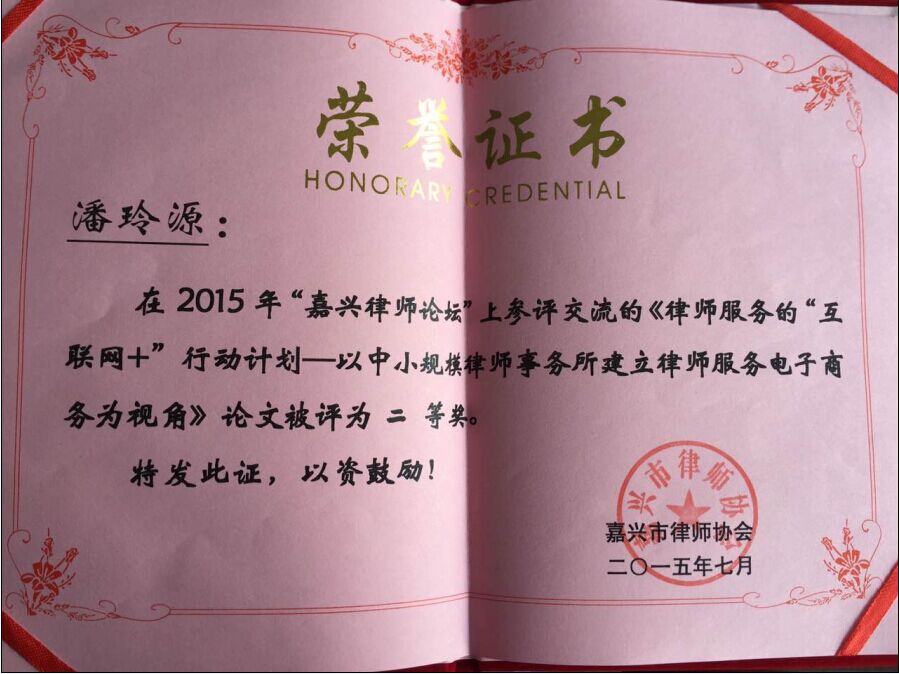 荣誉证书
HONORARY CREDENTIAL
潘玲源：
在 2015 年“嘉兴律师论坛”上参评交流的《律师服务的“互
联网＋”行动计划—以中小规模律师事务所建立律师服务电子商
务为视角》论文被评为 二 等奖。
特发此证，以资鼓励！
嘉兴市律师协会
嘉兴市律师协会
二〇一五年七月